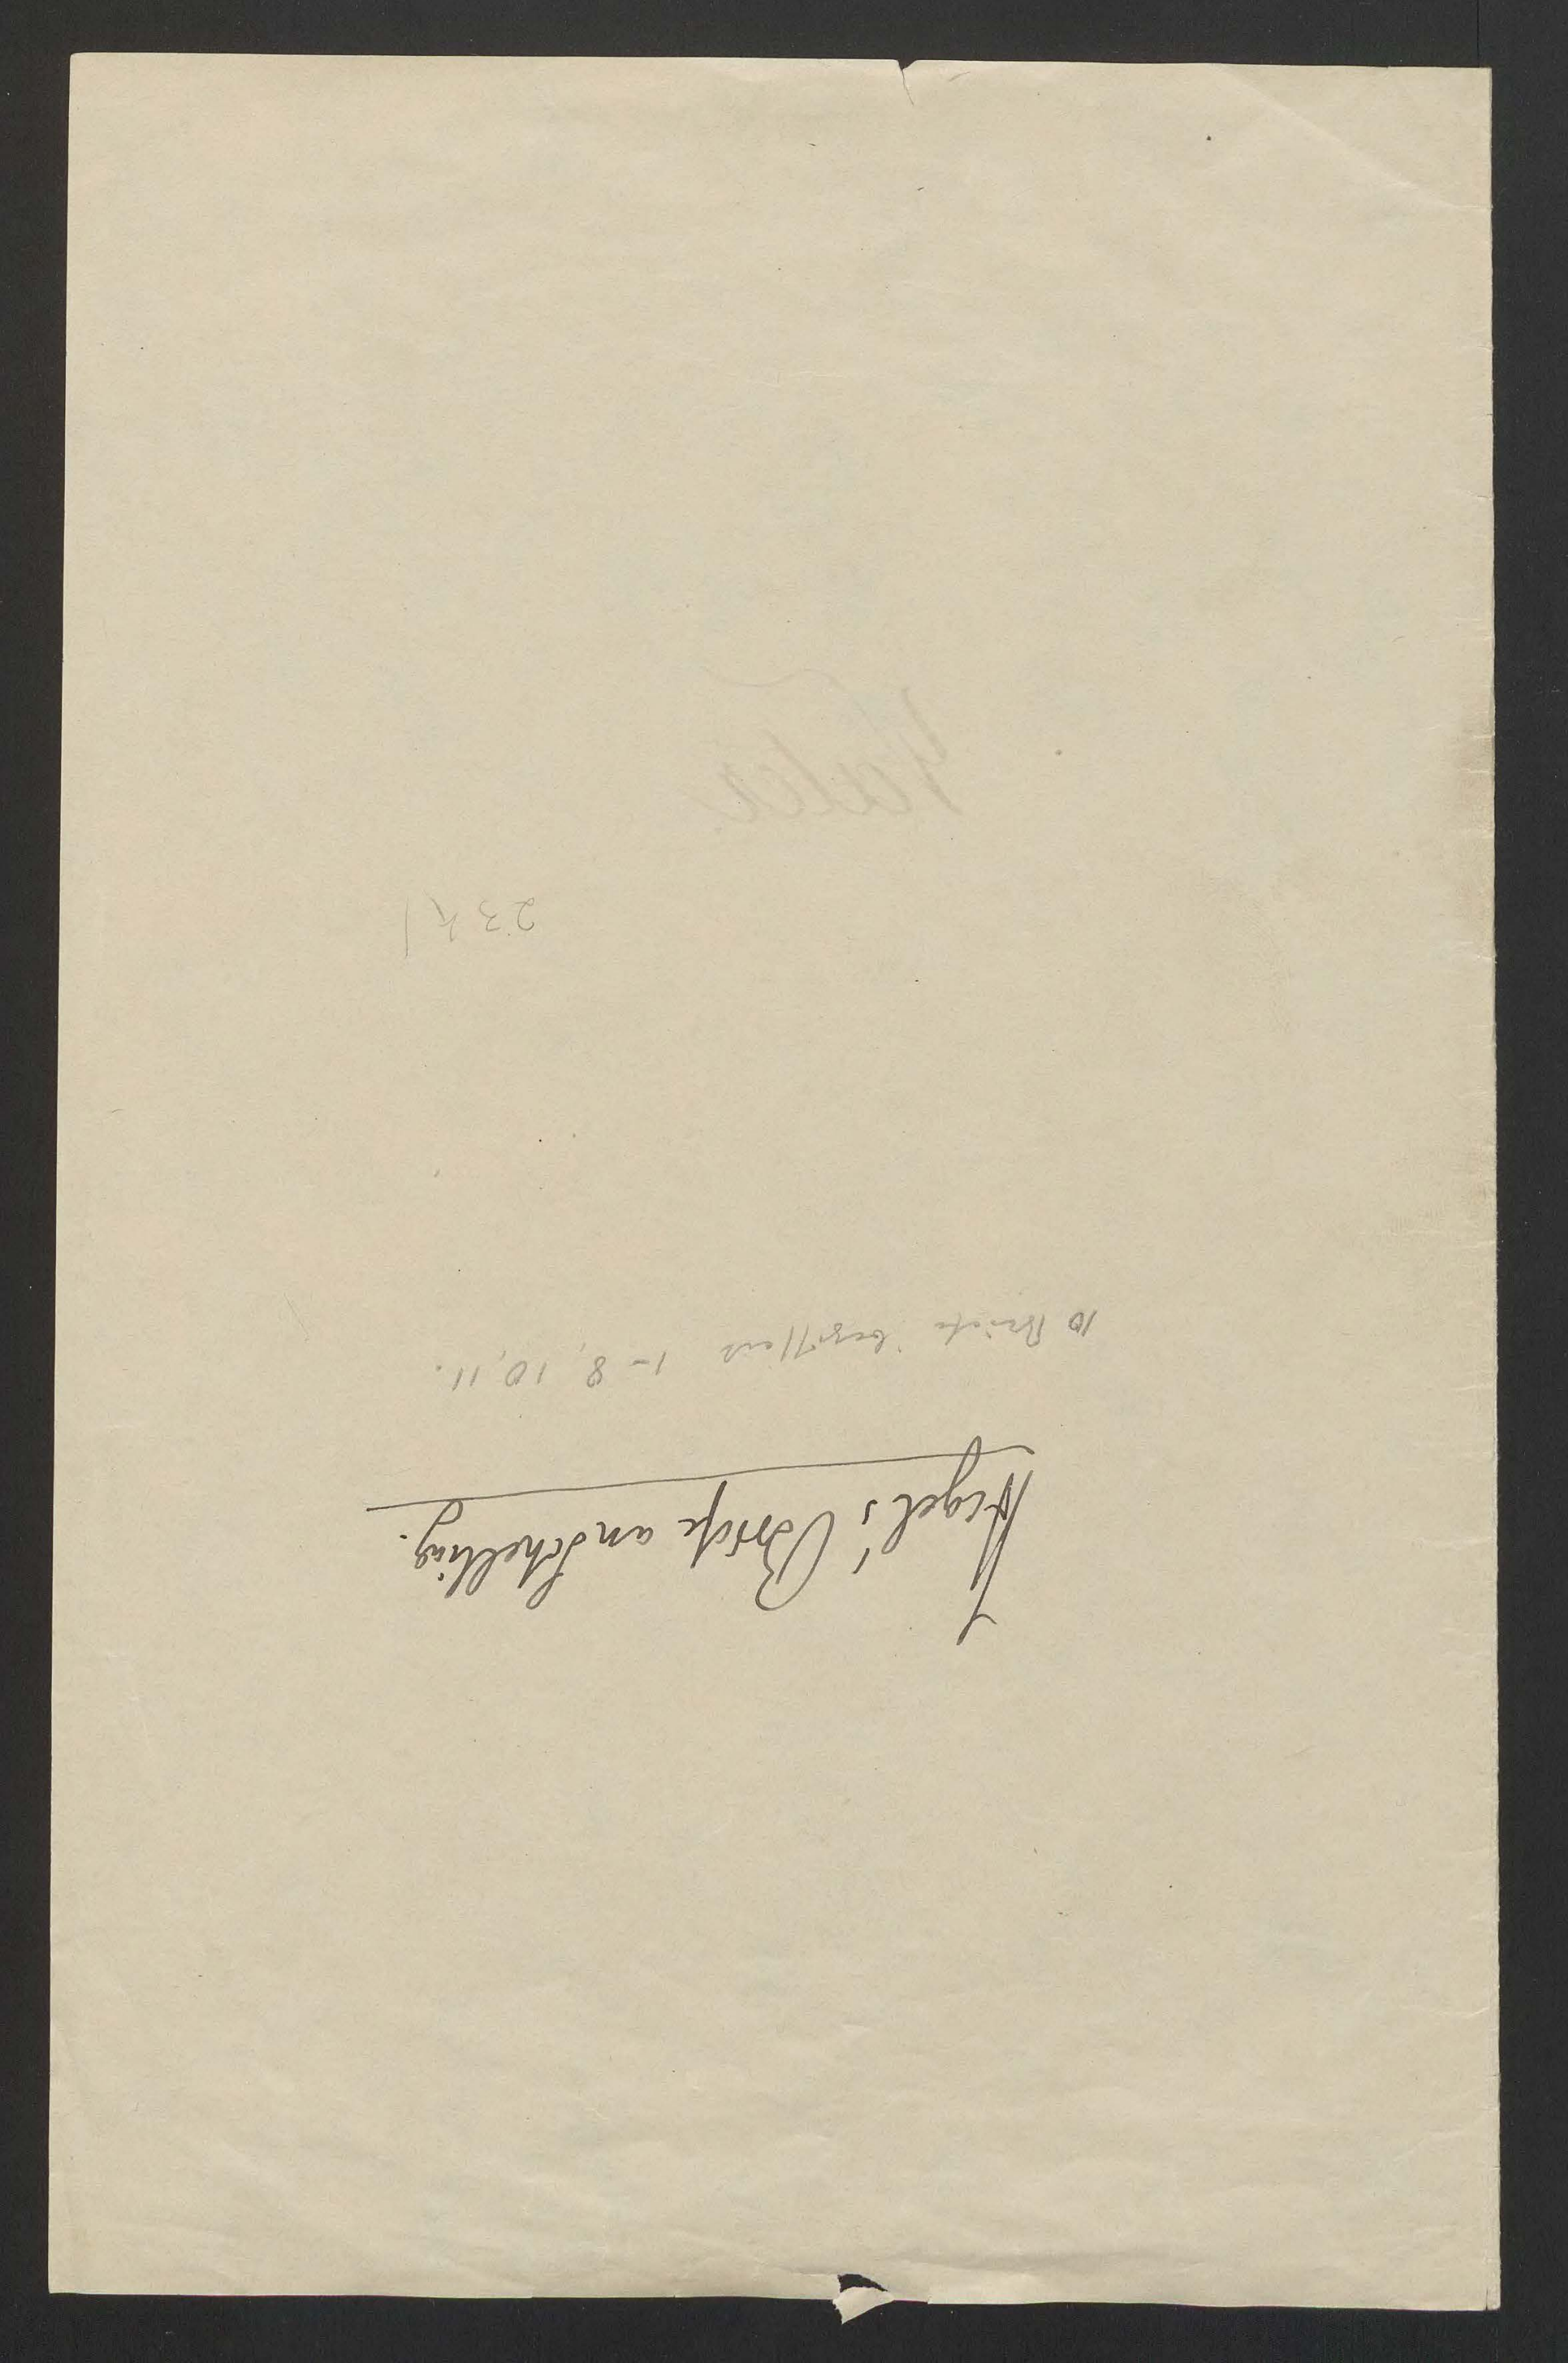 Hegel's Briefe an Schelling.
10 Briefe beziffert 1-8, 10, 11.